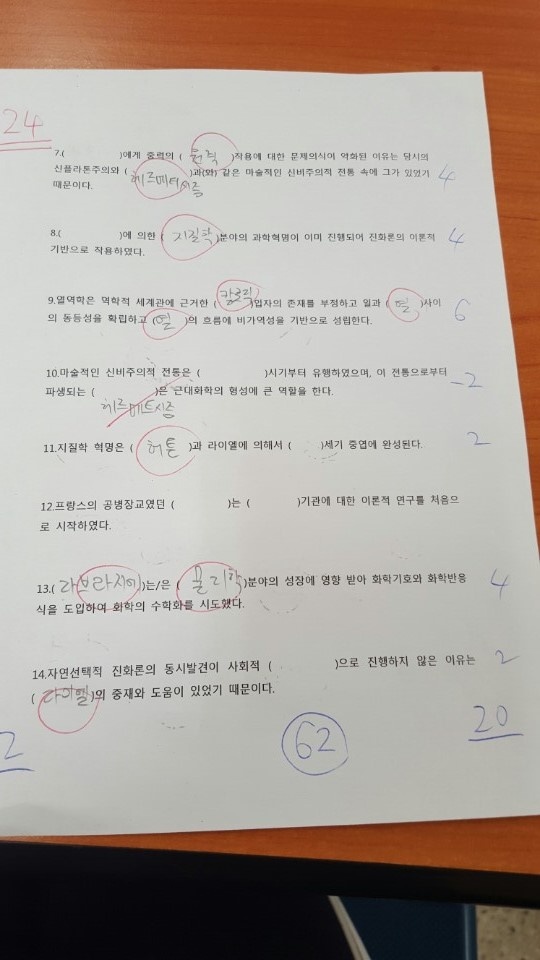 24
7.( )에게 중력의 ( 원격 )작용에 대한 문제의식이 약화된 이유는 당시의
신플라톤주의와 ( 헤르메티시즘 )과(와) 같은 마술적인 신비주의적 전통 속에 그가 있었기 4
때문이다.
8.( )에 의한 ( 지질학 )분야의 과학혁명이 이미 진행되어 진화론의 이론적 4
기반으로 작용하였다.
9.열역학은 역학적 세계관에 근거한 ( 칼로릭 )입자의 존재를 부정하고 일과 ( 열 )사이 6
의 동등성을 확립하고 ( 열 )의 흐름에 비가역성을 기반으로 성립한다.
10.마술적인 신비주의적 전통은 ( )시기부터 유행하였으며, 이 전통으로부터 -2
파생되는 ( )은 근대화학의 형성에 큰 역할을 한다.
헤르메트시즘
11.지질학 혁명은 ( 허튼 )과 라이엘에 의해서 ( )세기 중엽에 완성된다. 2
12.프랑스의 공병장교였던 ( )는 ( )기관에 대한 이론적 연구를 처음으
로 시작하였다.
13.( 라보라지에 )는/은 ( 물리학 )분야의 성장에 영향 받아 화학기호와 화학반응 4
식을 도입하여 화학의 수학화를 시도했다.
14.자연선택적 진화론의 동시발견이 사회적 ( )으로 진행하지 않은 이유는 2
( 라이엘 )의 중재와 도움이 있었기 때문이다.
2 62 20